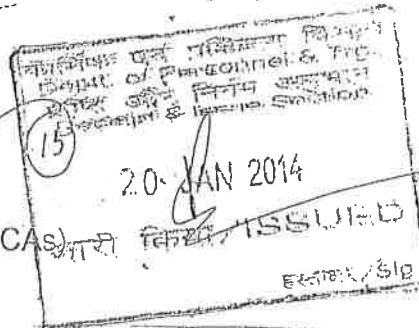 कार्मिक एवं प्रशिक्षण विभाग
Deptt. of Personnel & Trg.
Receipt & Issue Section
15
20 JAN 2014
CAS)
जारी किया/ISSUED
हस्ताक्षर/Sig